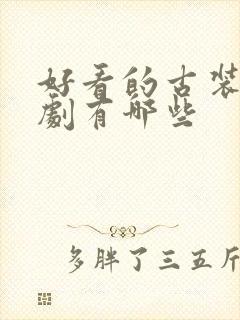 好看的古装
剧有哪些
多胖了三五斤